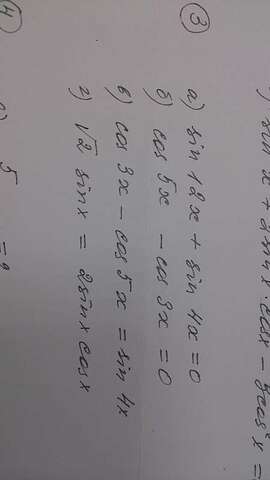 sin x + 2 sin x · cos x - 3cos²x =
③
а) sin 12x + sin 4x = 0
б) cos 5x - cos 3x = 0
в) cos 3x - cos 5x = sin 4x
г) √2 sin x = 2 sin x cos x
④
5